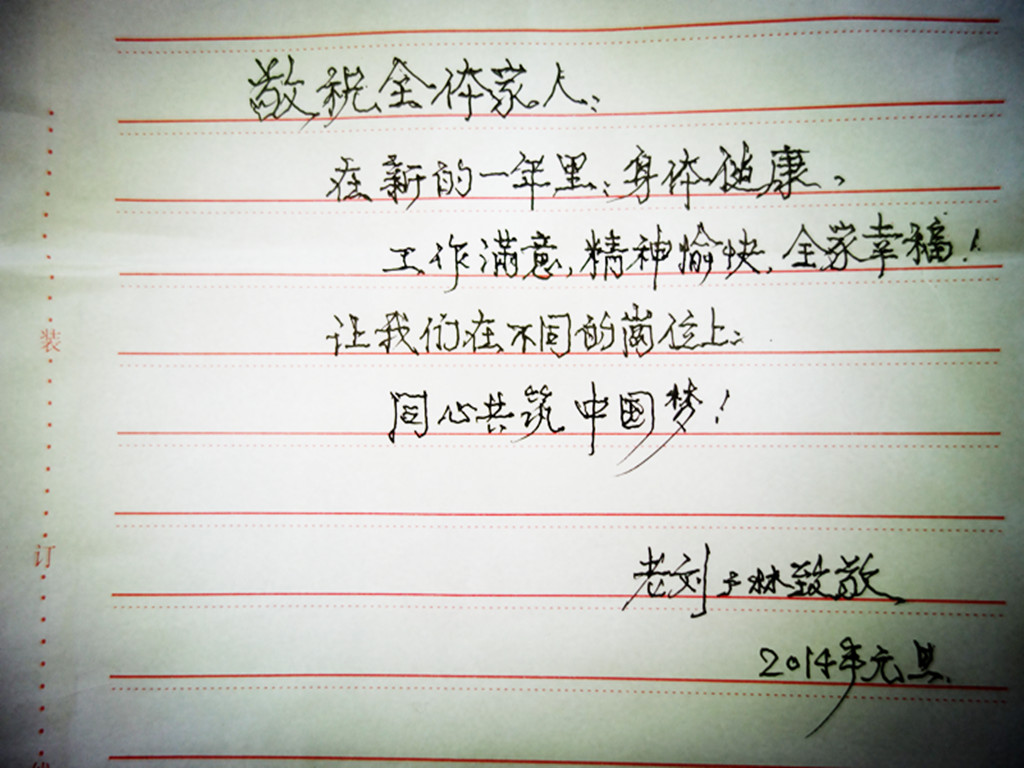 敬祝全体家人：
在新的一年里：身体健康、
工作满意，精神愉快，全家幸福！
让我们在不同的岗位上：
同心共筑中国梦！
老刘于林致敬
2014年元旦.
装
订